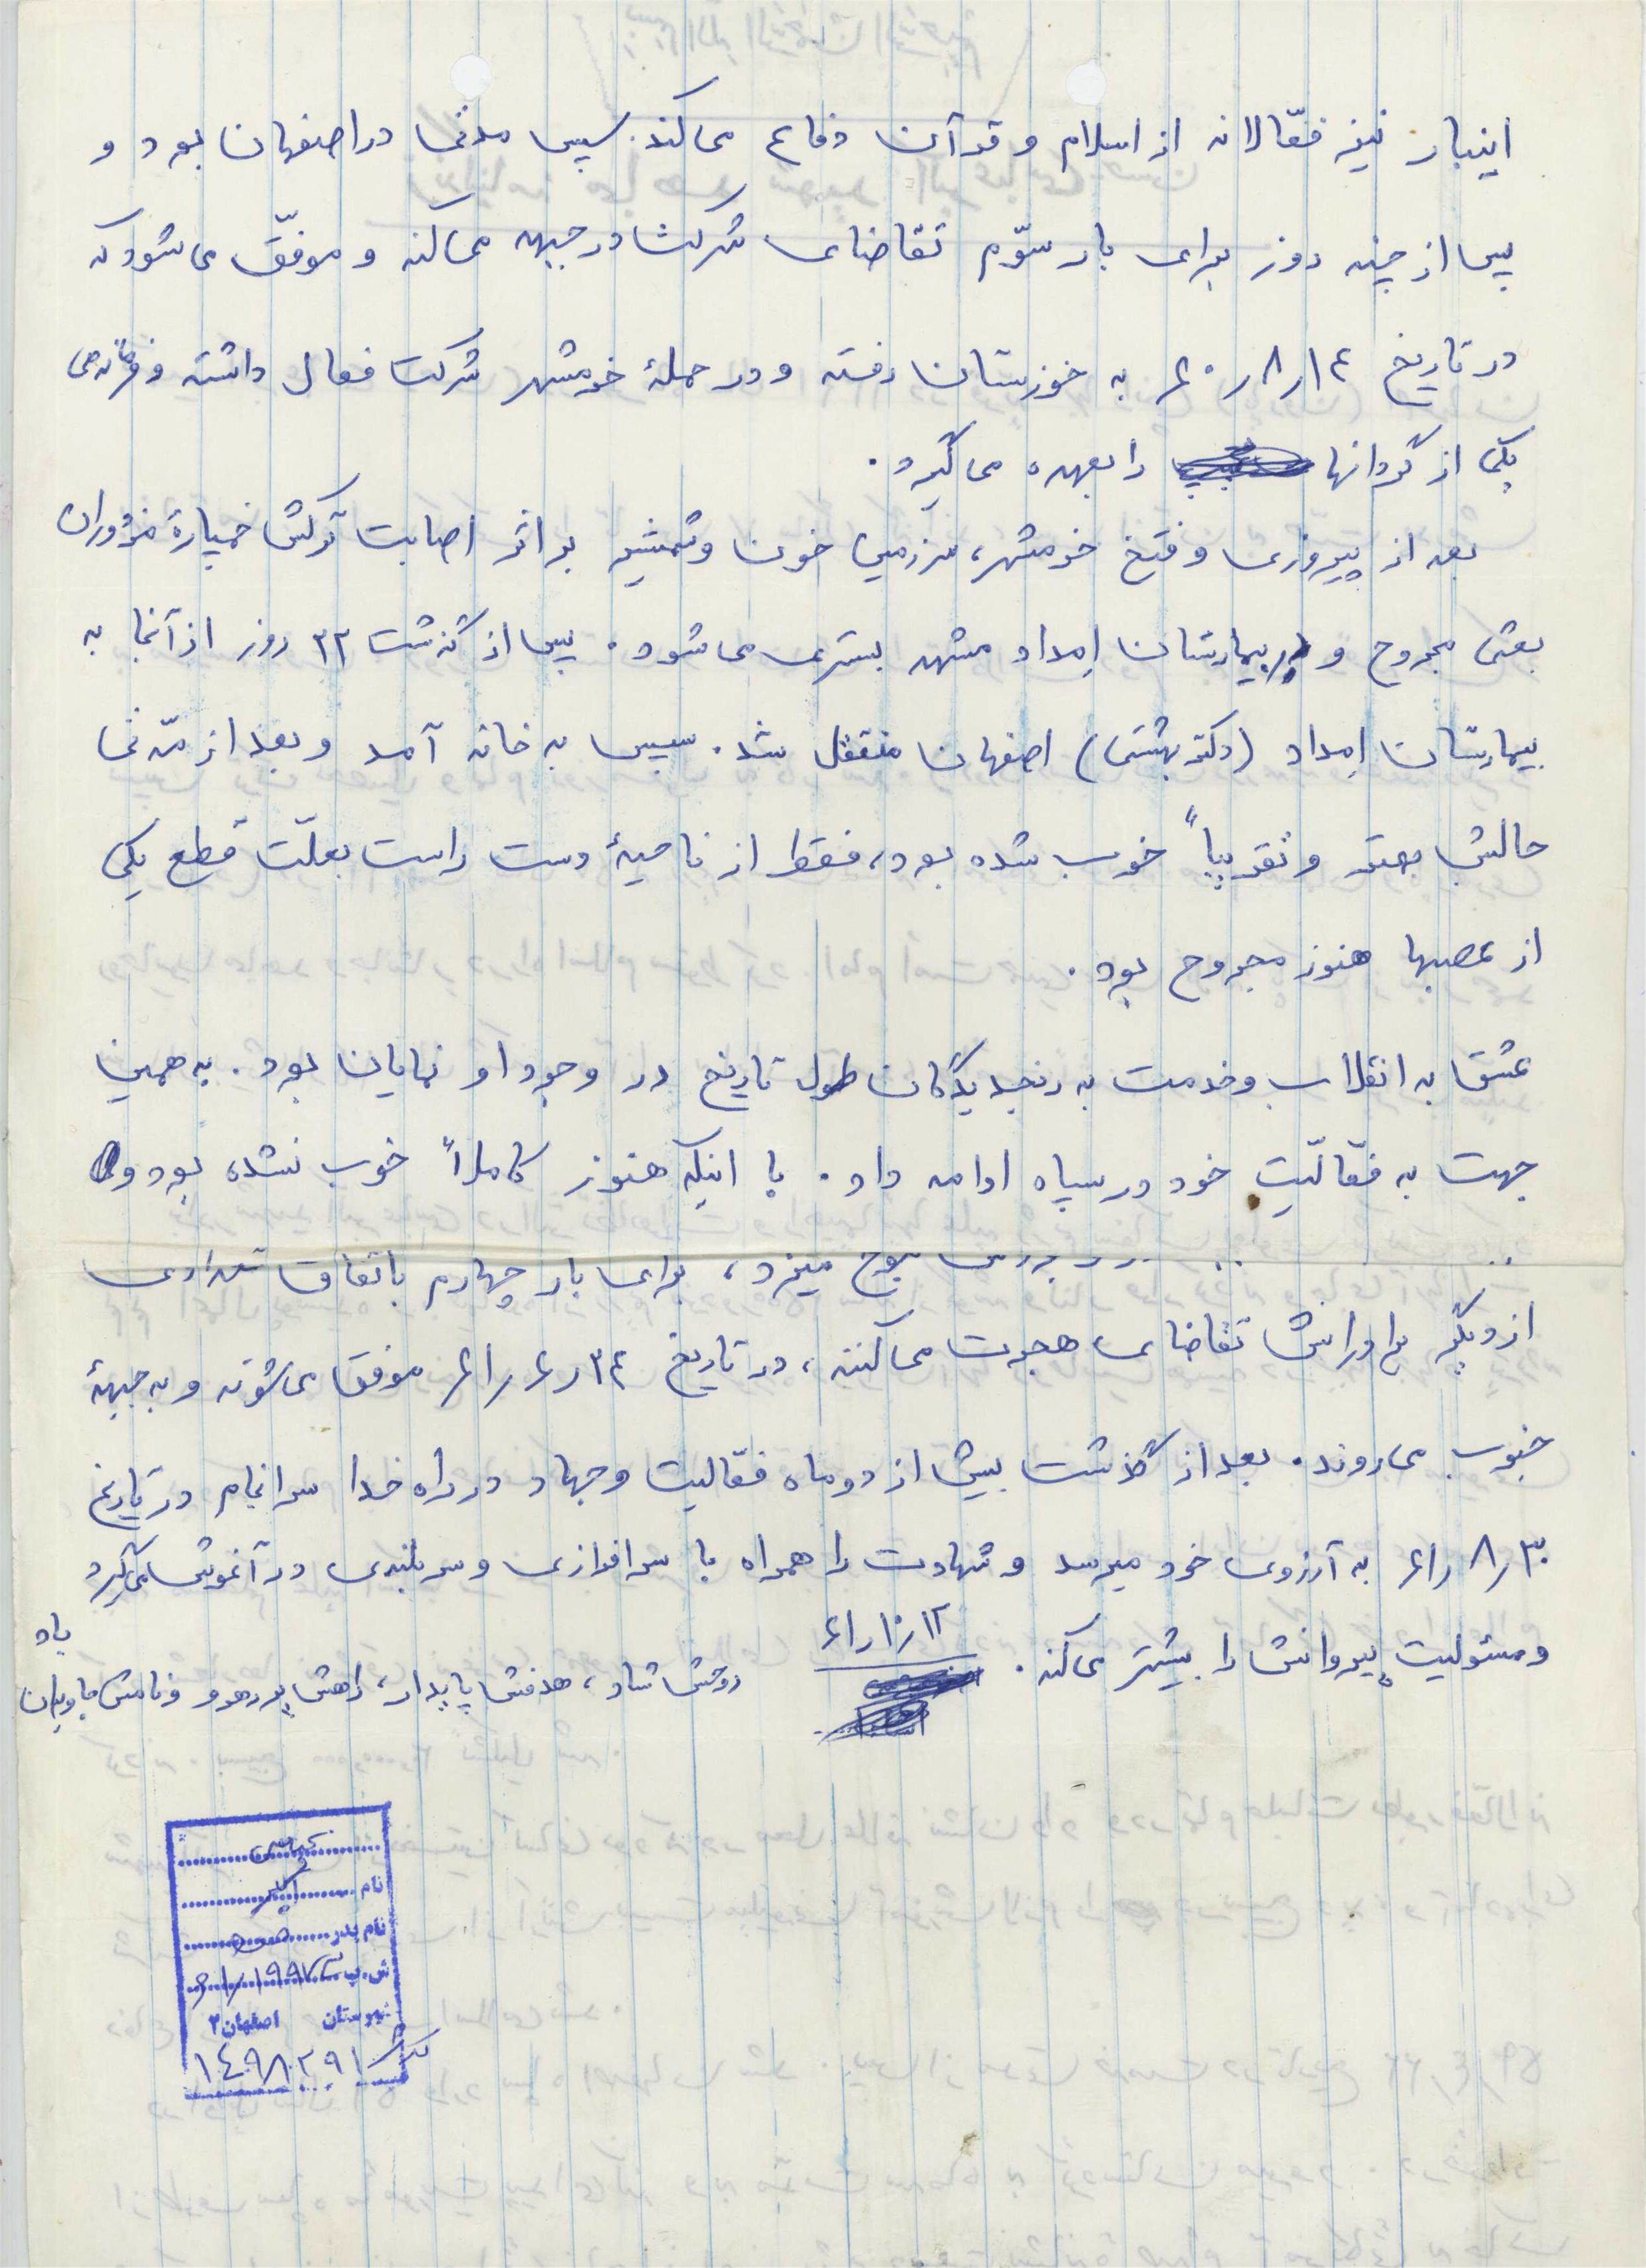 اینبار نیز فعّالانه از اسلام و قرآن دفاع می‌کند. سپس مدتی در اصفهان بود و
پس از چند روز برای بار سوّم تقاضای شرکت در جبهه می‌کند و موفّق می‌شود که
در تاریخ ۶۰٫۸٫۱۴ به خوزستان رفته و در حملهٔ خرمشهر شرکت فعال داشته و فرماندهی
یکی از گردانها را بعهده می‌گیرد.
بعد از پیروزی و فتح خرمشهر، سرزمین خون و شمشیر بر اثر اصابت ترکش خمپارهٔ مزدوران
بعثی مجروح و در بیمارستان امداد مشهد بستری می‌شود. پس از گذشت ۲۲ روز از آنجا به
بیمارستان امداد (دکتر بهشتی) اصفهان منتقل شد. سپس به خانه آمد و بعد از مدّتی
حالش بهتر و تقریباً خوب شده بود، فقط از ناحیهٔ دست راست بعلّت قطع یکی
از عصبها هنوز مجروح بود.
عشق به انقلاب و خدمت به رنجدیدگان طول تاریخ در وجود او نمایان بود. به همین
جهت به فعّالیّت خود در سپاه ادامه داد. با اینکه هنوز کاملاً خوب نشده بود و
موج میزد، برای بار چهارم باتفاق تعدادی
از دیگر برادرانش تقاضای هجرت می‌کنند، در تاریخ ۶۱٫۶٫۲۴ موفق می‌شوند و به جبههٔ
جنوب می‌روند. بعد از گذشت بیش از دو ماه فعّالیت و جهاد در راه خدا سرانجام در تاریخ
۶۱٫۸٫۳۰ به آرزوی خود میرسد و شهادت را همراه با سرافرازی و سربلندی در آغوش می‌گیرد
و مسئولیت پیروانش را بیشتر می‌کند.
۶۱٫۱۰٫۱۲
روحش شاد، هدفش پایدار، راهش پر رهرو و نامش جاویدان
باد
نام اکبر
نام پدر
ش.پ
شهرستان اصفهان ۲